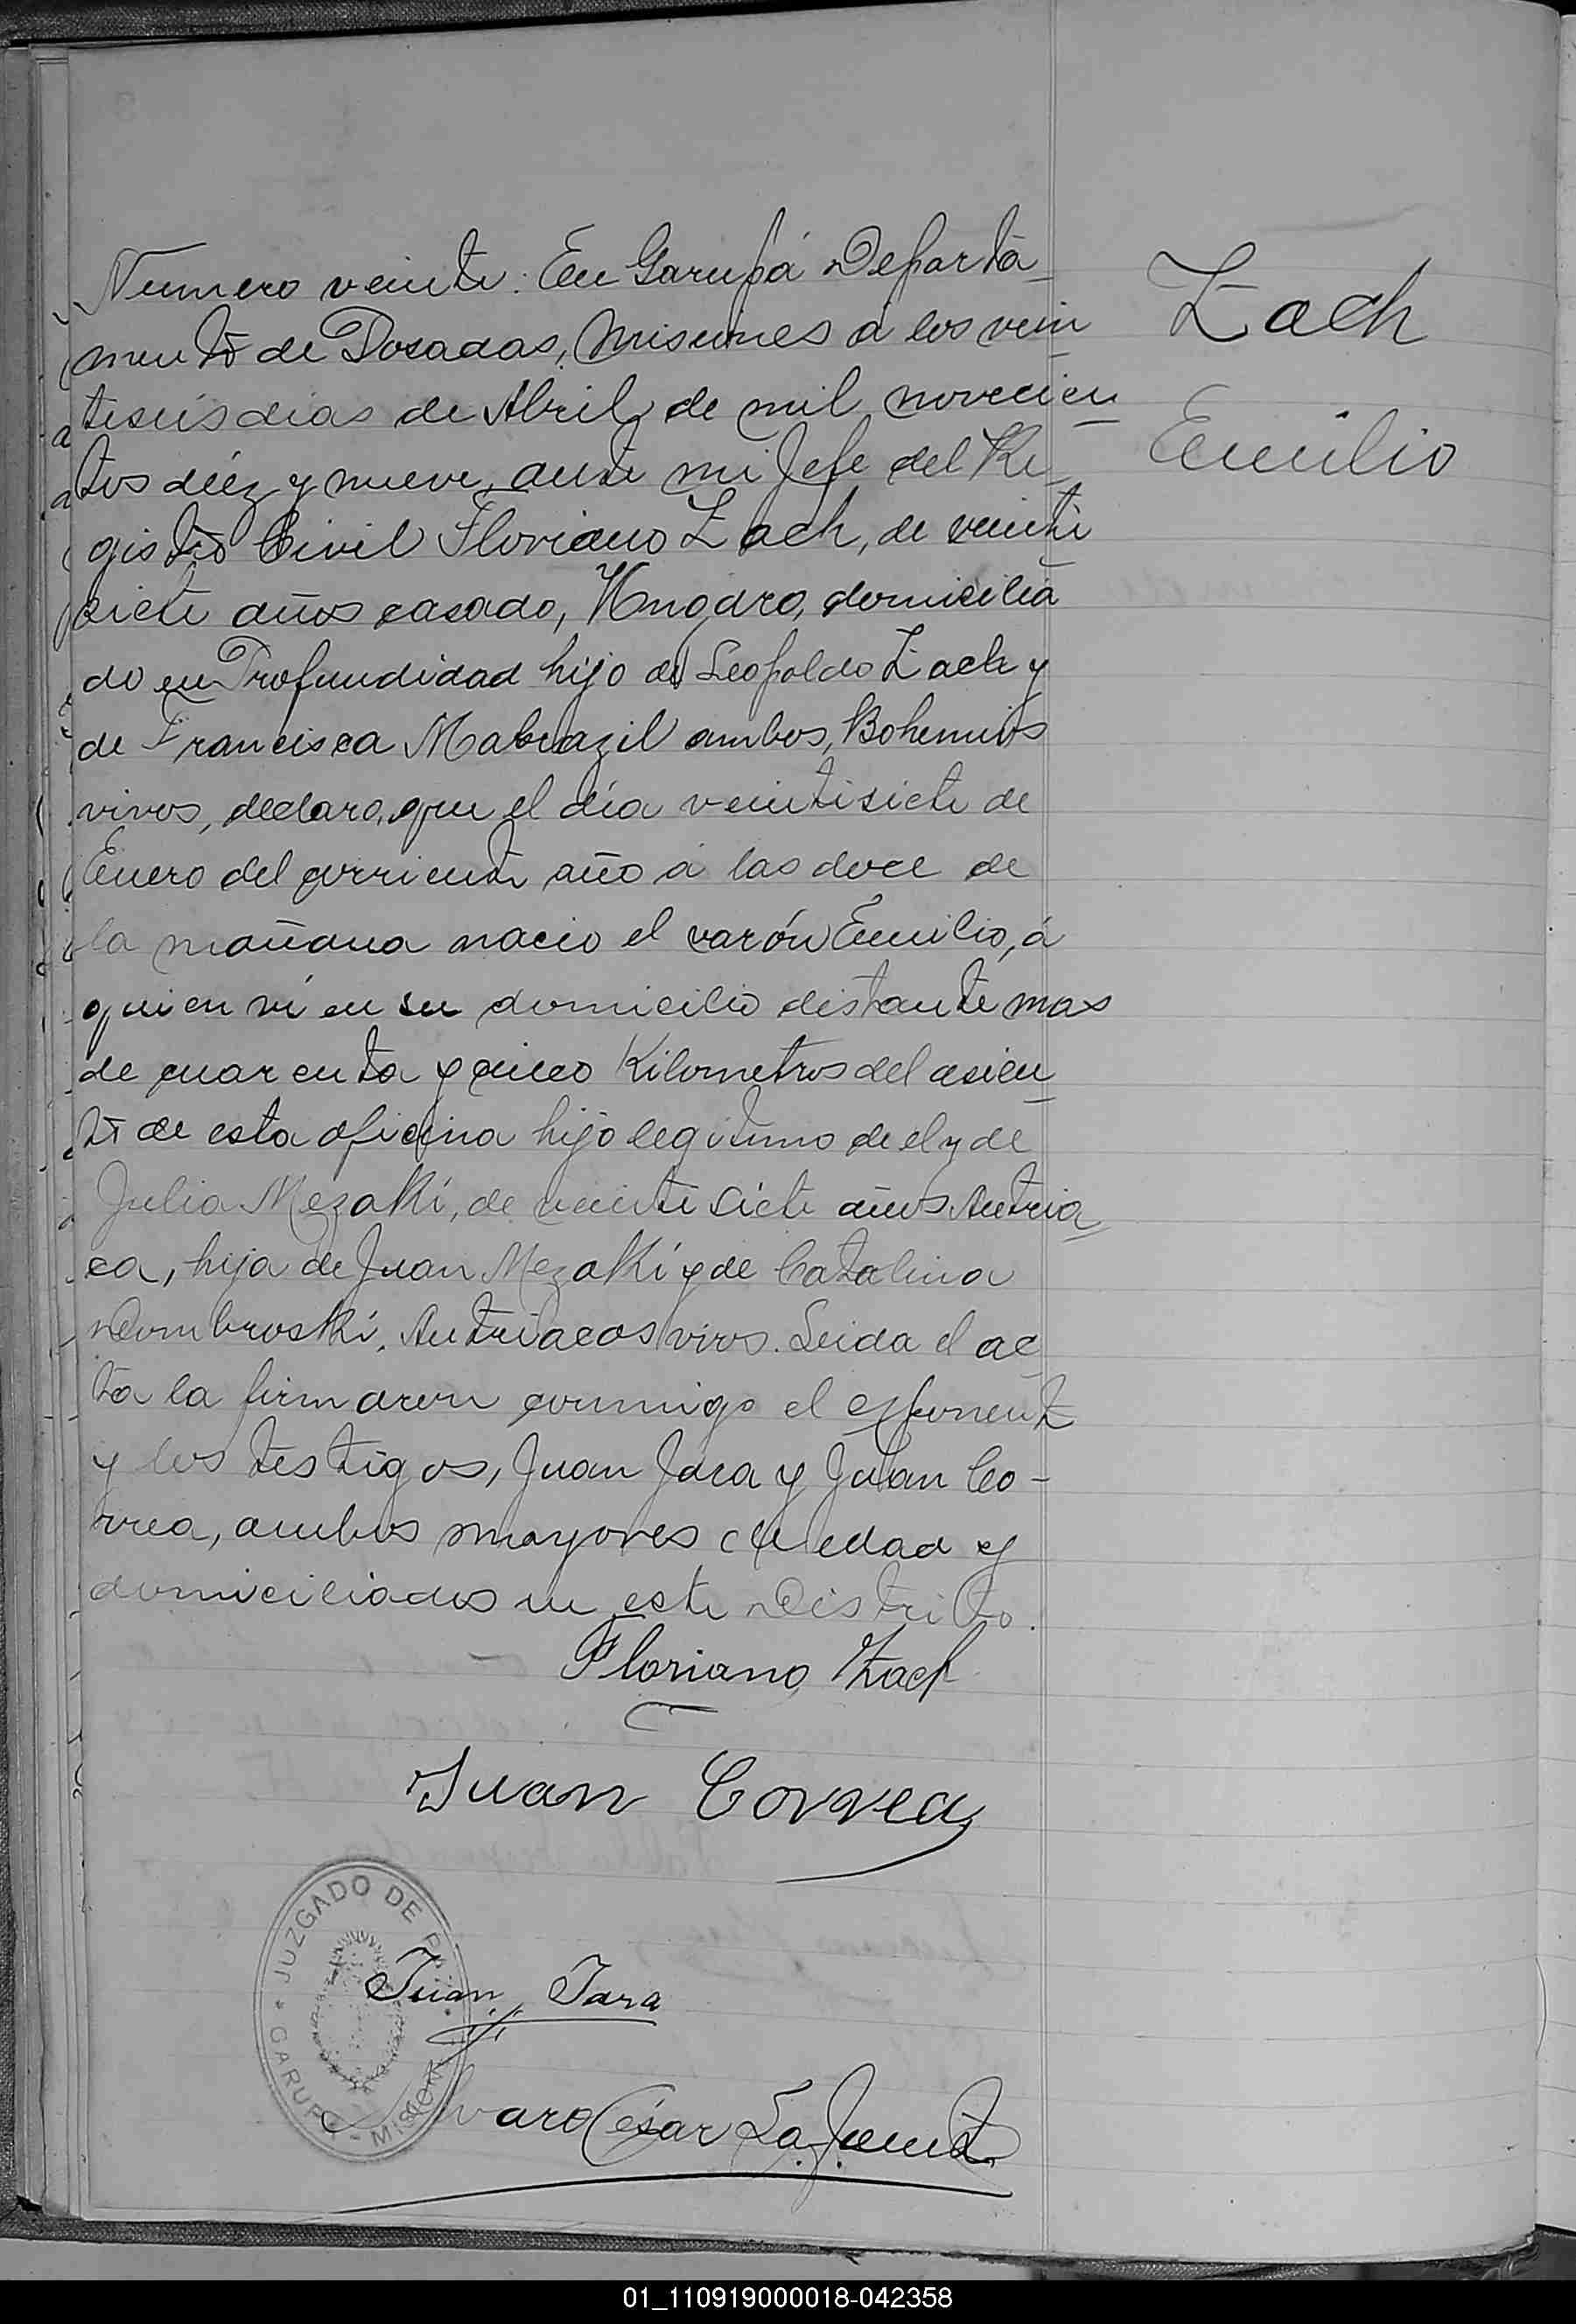 Numero veinte: En Garupá Departa-
mento de Posadas, Misiones á los vein
teseis dias de Abril de mil novecien
tos diéz y nueve, ante mi Jefe del Re
gistro Civil Floriano Zach, de veinti
siete años casado, Hungaro, domicilia
do en Profundidad hijo de Leopoldo Zach y
de Francisca ambos, Bohemios
vivos, declaro, que el día veintisiete de
Enero del corriente año á las doce de
la mañana nacio el varón Emilio, á
quien ví en su domicilio distante mas
de cuarenta y cinco Kilometros del asien
to de esta oficina hijo legitimo de el y de
Julia Mezaki, de veinti siete años Autria
ca, hija de Juan Mezaki y de Catalina
Dombroski, Autriacos vivos. Leida el ac
ta la firmaron conmigo el exponente
y los testigos, Juan Jara y Juan Co-
rrea, ambos mayores de edad y
domiciliados en este Distrito.
Zach
Emilio
Floriano Zach
Juan Correa
JUZGADO DE
Juan Jara
GARUPÁ - MISIONES
Alvaro César Lafuente
01_110919000018-042358